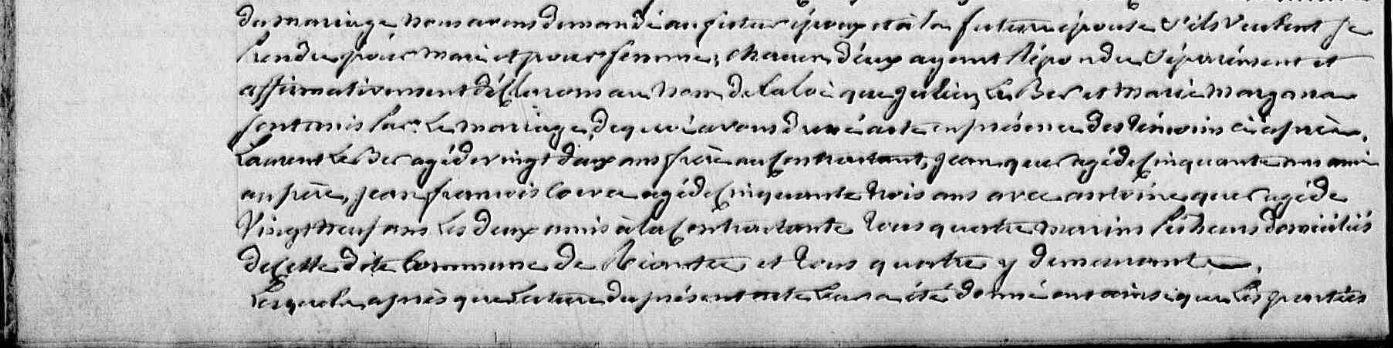 du mariage nous avons demandé au futur époux et à la future épouse s'ils veulent se
prendre pour mari et pour femme, chacun d'eux ayant répondu séparément et
affirmativement déclarons au nom de la loi que julien Le Bec et Marie
sont unis par le mariage, de quoi avons dressé acte en présence des témoins ci après,
Laurent Le Bec agé de vingt deux ans frère au contractant, jean quer agé de cinquante ans ami
au frère, jean françois agé de cinquante trois ans avec antoine quer agé de
vingt neuf ans les deux amis à la contractante tous quatre marins pêcheurs domiciliés
de cette dite commune de et tous quatre y demeurants,
lesquels après que lecture du présent acte leur a été donné ont ainsi que les parties